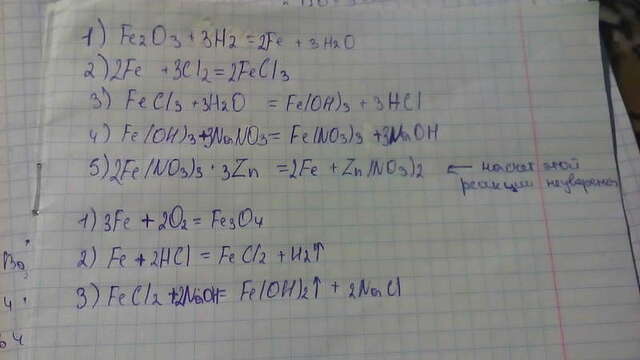 1) Fe2O3 + 3H2 = 2Fe + 3H2O
2) 2Fe + 3Cl2 = 2FeCl3
3) FeCl3 + 3H2O = Fe(OH)3 + 3HCl
4) Fe(OH)3 + 3NaNO3 = Fe(NO3)3 + 3NaOH
5) 2Fe(NO3)3 · 3Zn = 2Fe + Zn(NO3)2 ← насчет этой
реакции неуверена
1) 3Fe + 2O2 = Fe3O4
2) Fe + 2HCl = FeCl2 + H2↑
3) FeCl2 + 2NaOH = Fe(OH)2↑ + 2NaCl